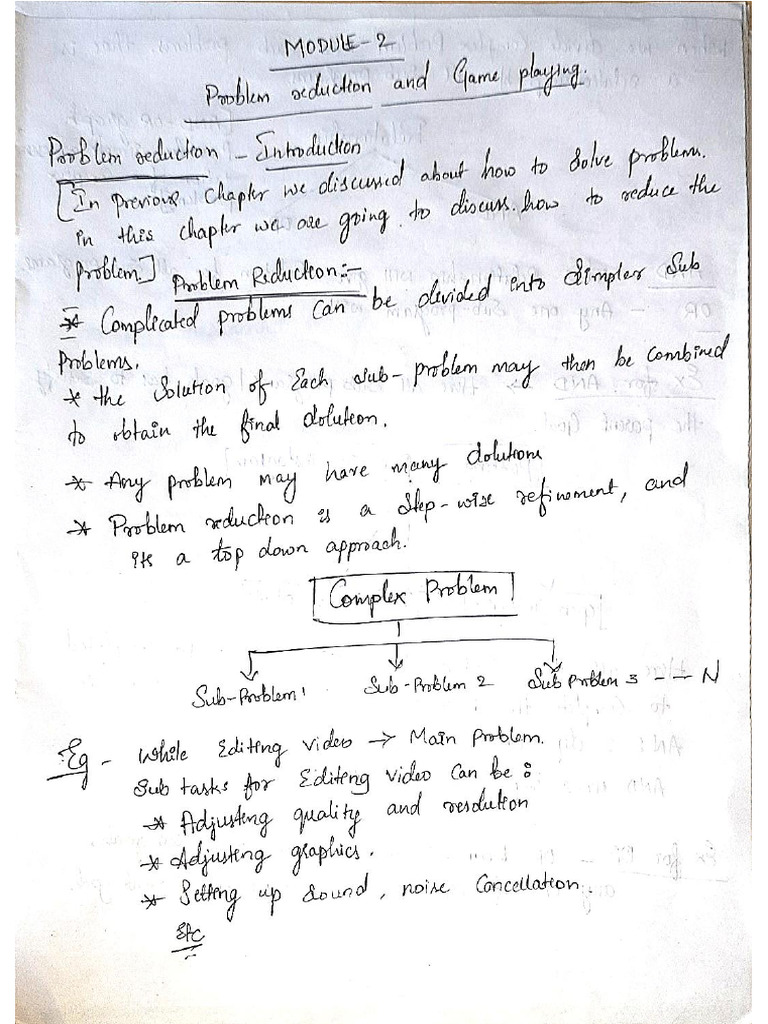 MODULE-2
Problem reduction and Game playing.
Problem reduction - Introduction
[In previous chapter we discussed about how to solve problems.
in this chapter we are going to discuss how to reduce the
problem.] Problem Riduction:-
* Complicated problems can be devided into simpler sub
problems.
* the solution of Each sub-problem may then be combined
to obtain the final solution.
* Any problem may have many solutions
* Problem reduction is a step-wise refinement, and
its a top down approach.
Complex Problem
Sub-Problem 1 Sub-Problem 2 Sub Problem 3 --- N
Eg - While Editing video → Main Problem.
Sub tasks for Editing video can be:
* Adjusting quality and resolution
* Adjusting graphics.
* Setting up sound, noise Cancellation.
Etc